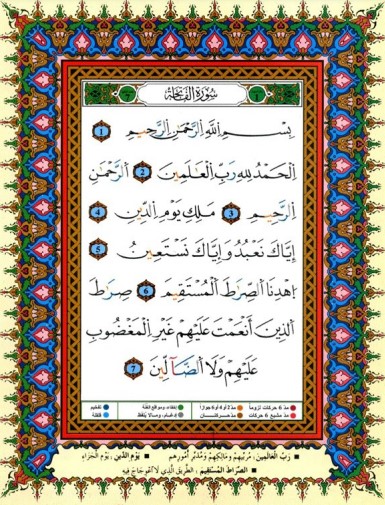 سُورَةُ الفَاتِحَةِ
بِسْمِ اللَّهِ الرَّحْمَٰنِ الرَّحِيمِ ١
الْحَمْدُ لِلَّهِ رَبِّ الْعَٰلَمِينَ ٢ الرَّحْمَٰنِ
الرَّحِيمِ ٣ مَٰلِكِ يَوْمِ الدِّينِ ٤
إِيَّاكَ نَعْبُدُ وَإِيَّاكَ نَسْتَعِينُ ٥
اهْدِنَا الصِّرَٰطَ الْمُسْتَقِيمَ ٦ صِرَٰطَ
الَّذِينَ أَنْعَمْتَ عَلَيْهِمْ غَيْرِ الْمَغْضُوبِ
عَلَيْهِمْ وَلَا الضَّآلِّينَ ٧
مدّ ٦ حركات لزوماً مدّ ٢ أو ٤ أو ٦ جوازاً إخفاء، ومواقع الغنّة تفخيم
مدّ مشبع ٦ حركات مدّ حركتان إدغام، وما لا يُلفظ قلقلة
رَبِّ الْعَالَمِينَ: مُرَبِّيهِمْ وَمَالِكِهِمْ وَمُدَبِّرِ أُمُورِهِم ■ يَوْمِ الدِّينِ: يَوْمِ الْجَزَاءِ
■ الصِّرَاطَ الْمُسْتَقِيمَ: الطَّرِيقَ الَّذِي لَا اعْوِجَاجَ فِيهِ